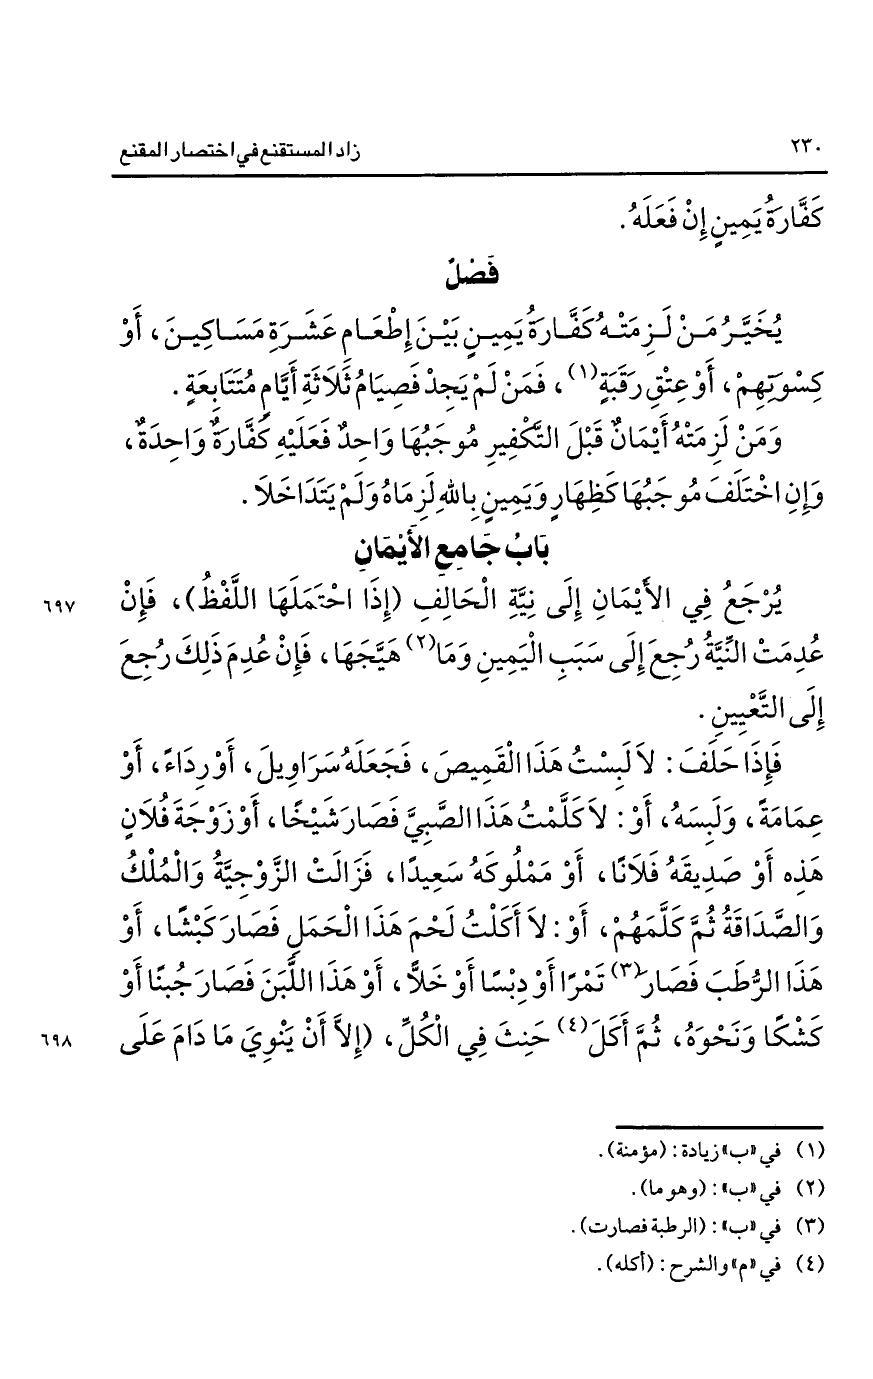 ٢٣٠ زاد المستقنع في اختصار المقنع
كَفَّارَةُ يَمِينٍ إِنْ فَعَلَهُ.
فَصْلٌ
يُخَيَّرُ مَنْ لَزِمَتْهُ كَفَّارَةُ يَمِينٍ بَيْنَ إِطْعَامِ عَشَرَةِ مَسَاكِينَ، أَوْ
كِسْوَتِهِمْ، أَوْ عِتْقِ رَقَبَةٍ(١)، فَمَنْ لَمْ يَجِدْ فَصِيَامُ ثَلَاثَةِ أَيَّامٍ مُتَتَابِعَةٍ.
وَمَنْ لَزِمَتْهُ أَيْمَانٌ قَبْلَ التَّكْفِيرِ مُوجَبُهَا وَاحِدٌ فَعَلَيْهِ كَفَّارَةٌ وَاحِدَةٌ،
وَإِنِ اخْتَلَفَ مُوجَبُهَا كَظِهَارٍ وَيَمِينٍ بِاللهِ لَزِمَاهُ وَلَمْ يَتَدَاخَلَا.
بَابُ جَامِعِ الأَيْمَانِ
يُرْجَعُ فِي الأَيْمَانِ إِلَى نِيَّةِ الْحَالِفِ (إِذَا احْتَمَلَهَا اللَّفْظُ)، فَإِنْ ٦٩٧
عُدِمَتْ النِّيَّةُ رُجِعَ إِلَى سَبَبِ الْيَمِينِ وَمَا(٢) هَيَّجَهَا، فَإِنْ عُدِمَ ذَلِكَ رُجِعَ
إِلَى التَّعْيِينِ.
فَإِذَا حَلَفَ: لاَ لَبِسْتُ هَذَا الْقَمِيصَ، فَجَعَلَهُ سَرَاوِيلَ، أَوْ رِدَاءً، أَوْ
عِمَامَةً، وَلَبِسَهُ، أَوْ: لاَ كَلَّمْتُ هَذَا الصَّبِيَّ فَصَارَ شَيْخًا، أَوْ زَوْجَةَ فُلَانٍ
هَذِه أَوْ صَدِيقَهُ فَلَانًا، أَوْ مَمْلُوكَهُ سَعِيدًا، فَزَالَتْ الزَّوْجِيَّةُ وَالْمُلْكُ
وَالصَّدَاقَةُ ثُمَّ كَلَّمَهُمْ، أَوْ: لاَ أَكَلْتُ لَحْمَ هَذَا الْحَمَلِ فَصَارَ كَبْشًا، أَوْ
هَذَا الرُّطَبَ فَصَارَ(٣) تَمْرًا أَوْ دِبْسًا أَوْ خَلاًّ، أَوْ هَذَا اللَّبَنَ فَصَارَ جُبْنًا أَوْ
كَشْكًا وَنَحْوَهُ، ثُمَّ أَكَلَ(٤) حَنِثَ فِي الْكُلِّ، (إِلاَّ أَنْ يَنْوِيَ مَا دَامَ عَلَى ٦٩٨
(١) في «ب» زيادة: (مؤمنة).
(٢) في «ب»: (وهو ما).
(٣) في «ب»: (الرطبة فصارت).
(٤) في «م» والشرح: (أكله).